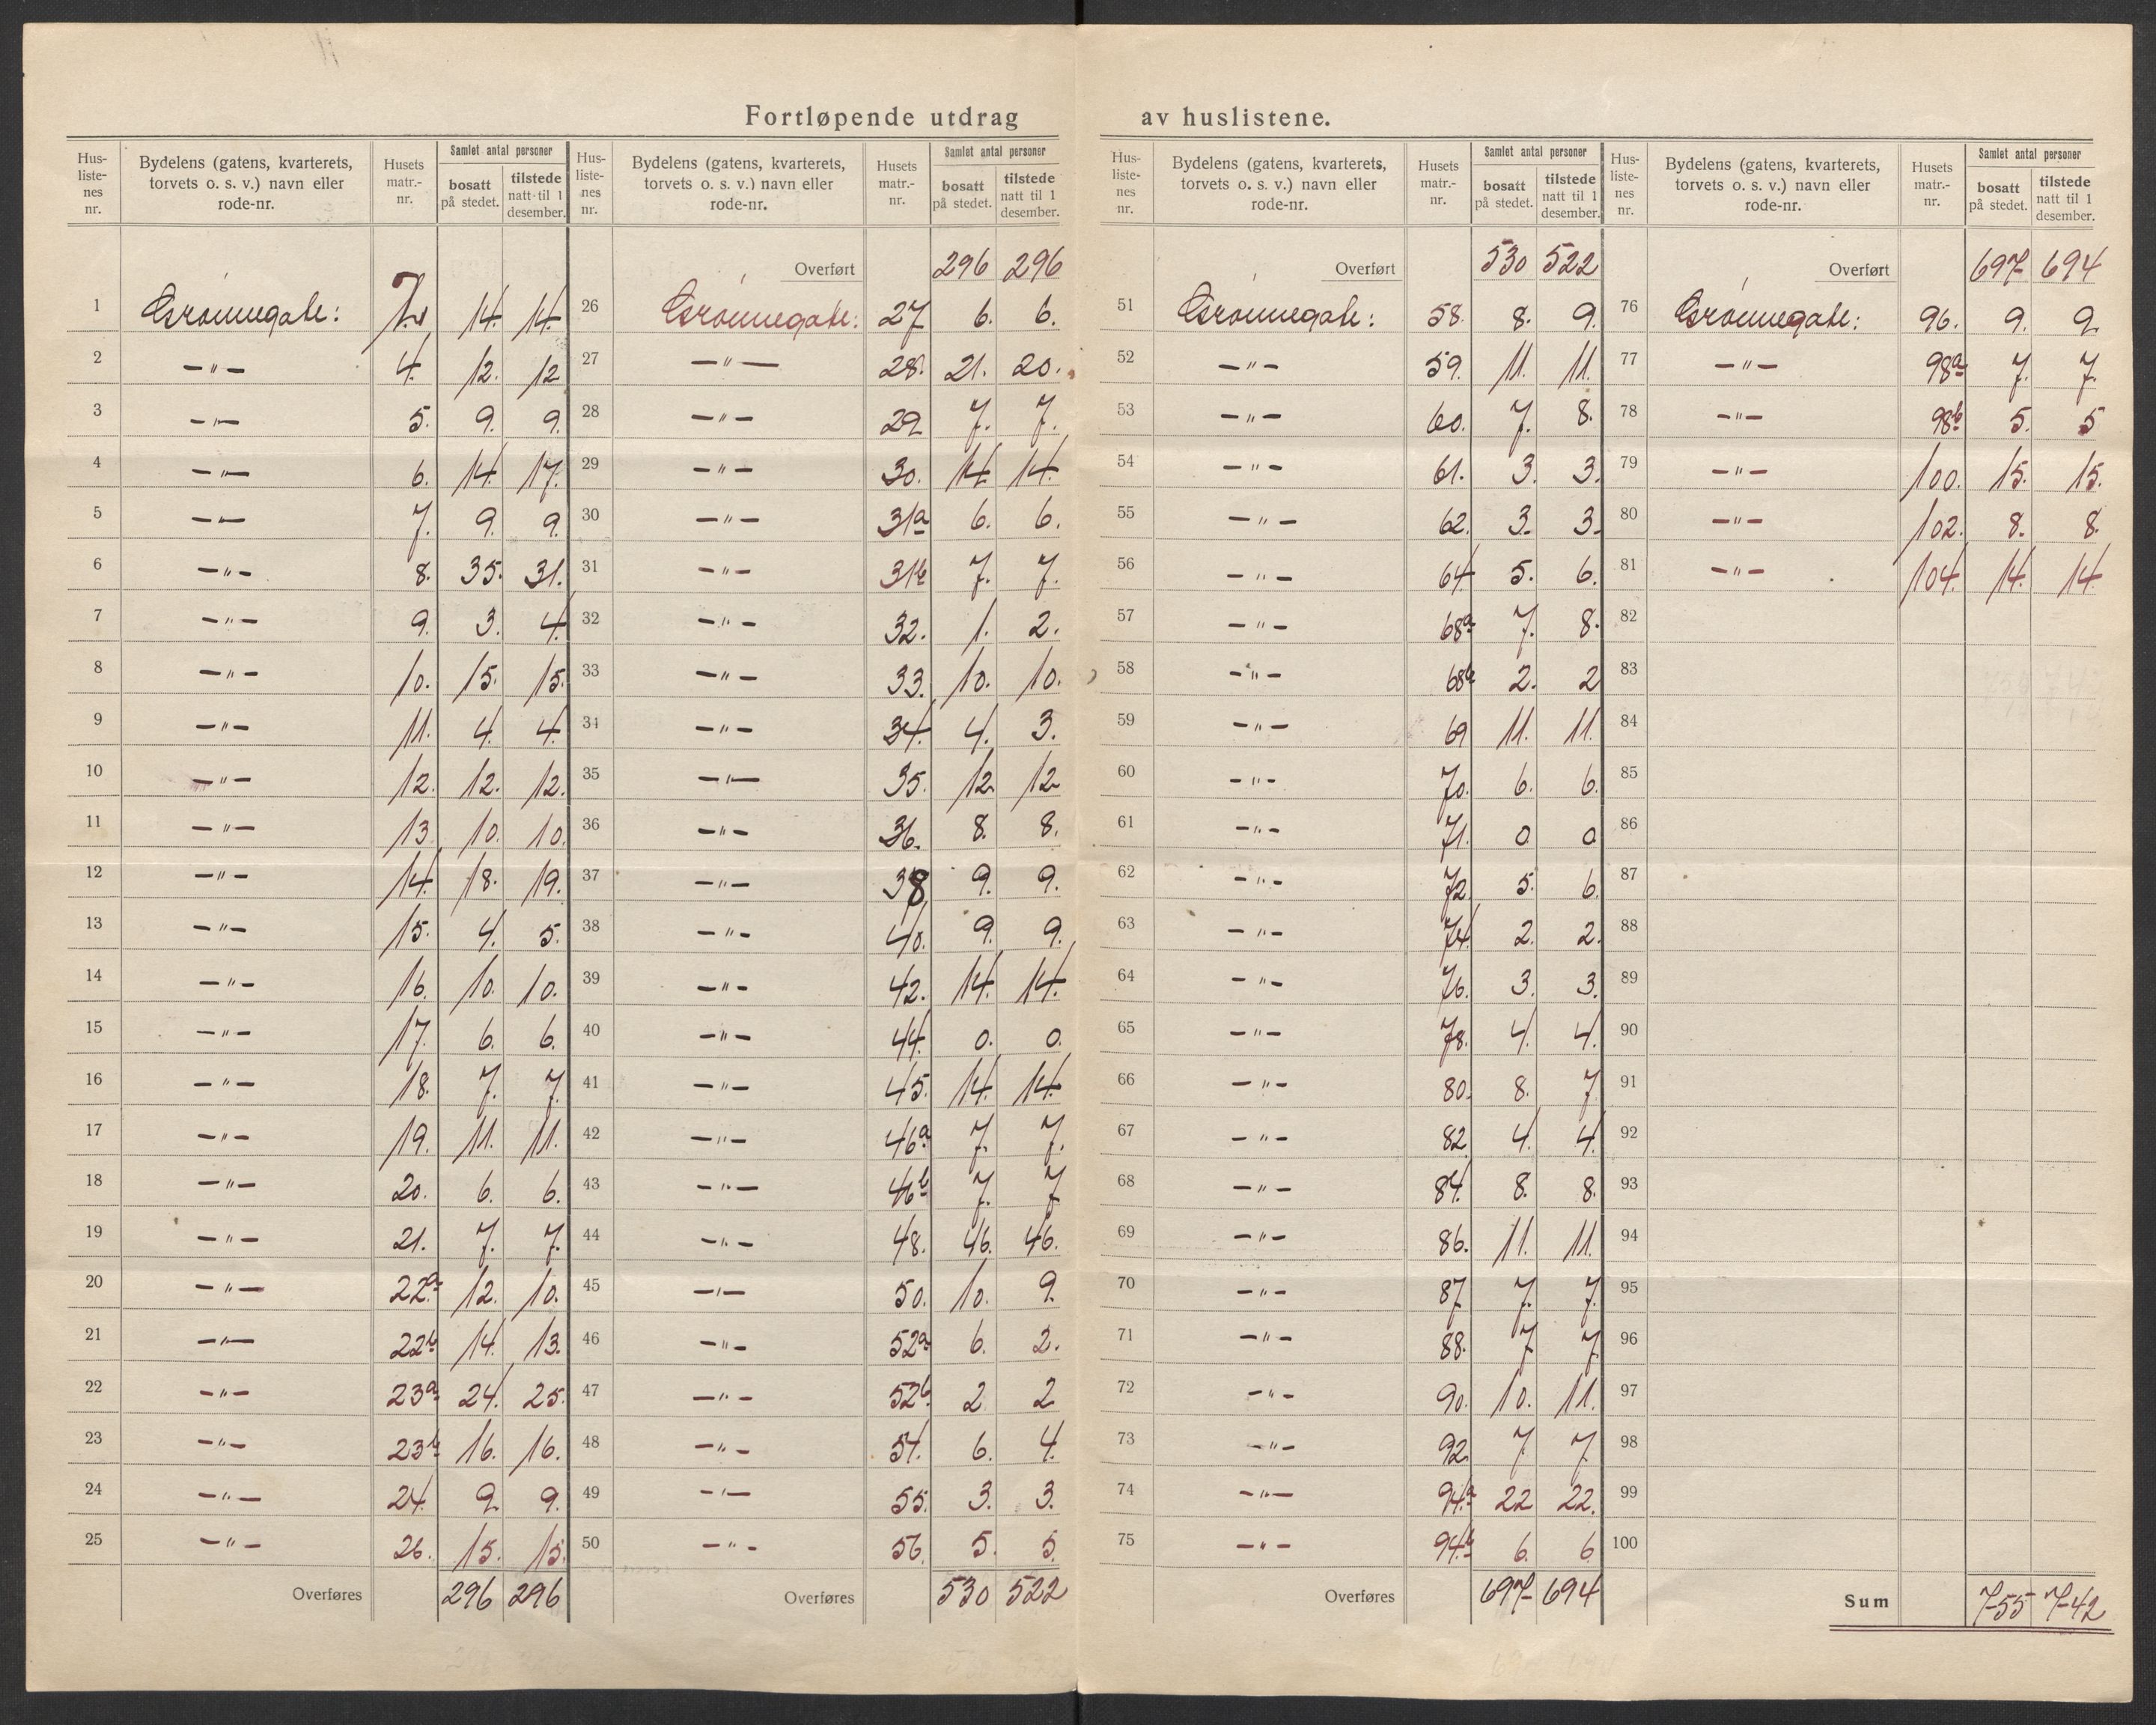 Fortløpende utdrag av huslistene.
Hus-liste-nes nr. | Bydelens (gatens, kvarterets, torvets o. s. v.) navn eller rode-nr. | Husets matr.-nr. | Samlet antal personer | bosatt på stedet. | tilstede natt til 1 desember.
1 Grønnegate: 14. 14.
2 —„— 4. 12. 12
3 —„— 5. 9. 9.
4 —„— 6. 14. 17.
5 —„— 7. 9. 9.
6 —„— 8. 35. 31.
7 —„— 9. 3. 4.
8 —„— 10. 15. 15.
9 —„— 11. 4. 4.
10 —„— 12. 12. 12.
11 —„— 13 10. 10.
12 —„— 14. 18. 19.
13 —„— 15. 4. 5.
14 —„— 16. 10. 10.
15 —„— 17. 6. 6.
16 —„— 18. 7. 7.
17 —„— 19. 11. 11.
18 —„— 20. 6. 6.
19 —„— 21. 7. 7.
20 —„— 22a 12. 10.
21 —„— 22b 14. 13.
22 —„— 23a 24. 25.
23 —„— 23b 16. 16.
24 —„— 24. 9 9.
25 —„— 26. 15. 15.
Overføres 296 296
Hus-liste-nes nr. | Bydelens (gatens, kvarterets, torvets o. s. v.) navn eller rode-nr. | Husets matr.-nr. | Samlet antal personer | bosatt på stedet. | tilstede natt til 1 desember.
Overført 296 296
26 Grønnegate: 27 6. 6.
27 —„— 28. 21. 20.
28 —„— 29 7. 7.
29 —„— 30. 14 14.
30 —„— 31a 6. 6.
31 —„— 31b 7. 7.
32 —„— 32. 1. 2.
33 —„— 33. 10. 10.
34 —„— 34. 4. 3.
35 —„— 35. 12 12
36 —„— 36. 8. 8.
37 —„— 38 9. 9.
38 —„— 40. 9. 9.
39 —„— 42. 14. 14.
40 —„— 44. 0. 0.
41 —„— 45. 14. 14.
42 —„— 46a 7. 7.
43 —„— 46b 7. 7
44 —„— 48. 46. 46.
45 —„— 50. 10. 9.
46 —„— 52a 6. 2.
47 —„— 52b 2 2
48 —„— 54. 6. 4.
49 —„— 55. 3. 3.
50 —„— 56. 5. 5.
Overføres 530 522
Hus-liste-nes nr. | Bydelens (gatens, kvarterets, torvets o. s. v.) navn eller rode-nr. | Husets matr.-nr. | Samlet antal personer | bosatt på stedet. | tilstede natt til 1 desember.
Overført 530 522
51 Grønnegate: 58. 8. 9.
52 —„— 59. 11. 11.
53 —„— 60. 7. 8.
54 —„— 61. 3. 3.
55 —„— 62. 3. 3.
56 —„— 64 5. 6.
57 —„— 68a 7. 8.
58 —„— 68b 2. 2
59 —„— 69 11. 11.
60 —„— 70. 6. 6.
61 —„— 71. 0 0
62 —„— 72 5. 6.
63 —„— 74. 2. 2.
64 —„— 76. 3. 3.
65 —„— 78. 4. 4.
66 —„— 80. 8. 7
67 —„— 82 4. 4.
68 —„— 84. 8. 8.
69 —„— 86. 11. 11.
70 —„— 87 7. 7.
71 —„— 88. 7 7
72 —„— 90. 10. 11.
73 —„— 92. 7 7
74 —„— 94a 22 22.
75 —„— 94b 6. 6
Overføres 697 694
Hus-liste-nes nr. | Bydelens (gatens, kvarterets, torvets o. s. v.) navn eller rode-nr. | Husets matr.-nr. | Samlet antal personer | bosatt på stedet. | tilstede natt til 1 desember.
Overført 697 694
76 Grønnegate: 96. 9. 9
77 —„— 98a 7. 7.
78 —„— 98b 5. 5
79 —„— 100. 15. 15.
80 —„— 102. 8. 8.
81 —„— 104. 14. 14
82
83
84
85
86
87
88
89
90
91
92
93
94
95
96
97
98
99
100
Sum 755 742